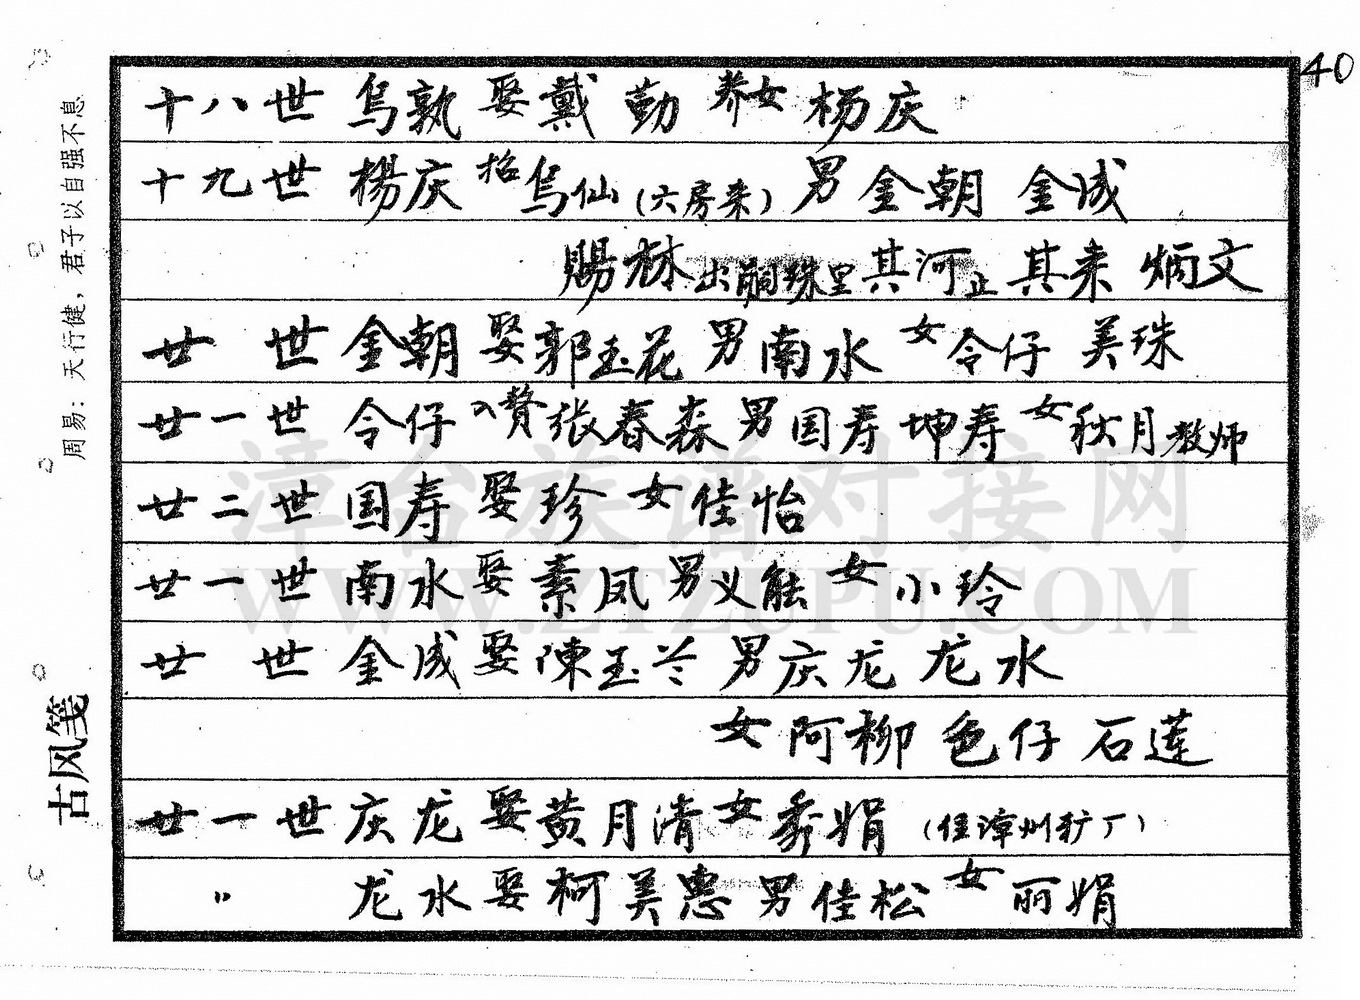 40
十八世 乌孰 娶戴勤 养女 杨庆
十九世 楊庆 招乌仙(六房来) 男金朝 金成
赐林出嗣珠里 其河止 其来 炳文
廿 世 金朝 娶郭玉花 男南水 女令仔 美珠
廿一世 令仔 入赘张春森 男国寿 坤寿 女秋月教师
廿二世 国寿 娶珍 女佳怡
廿一世 南水 娶素凤 男义能 女小玲
廿 世 金成 娶陳玉兰 男庆龙 龙水
女阿柳 色仔 石莲
廿一世 庆龙 娶黄月清 女秀娟 (住漳州矿厂)
〃 龙水 娶柯美惠 男佳松 女丽娟
周易：天行健，君子以自强不息
古风笺
漳台族谱对接网
WWW.ZTZUPU.COM